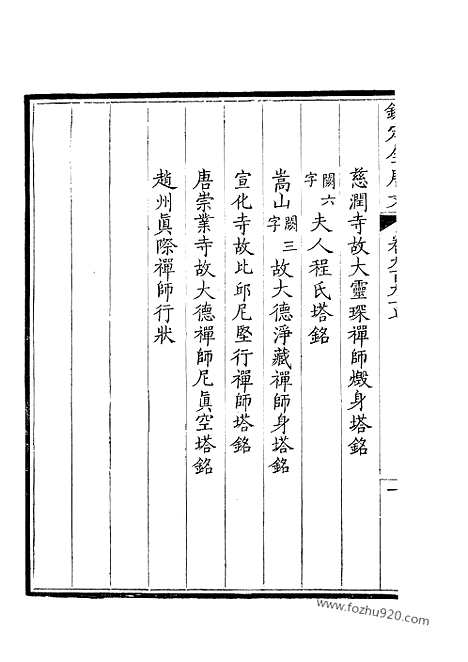 欽定全唐文
慈潤寺故大靈琛禪師燬身塔銘
闕六字夫人程氏塔銘
嵩山闕三字故大德淨藏禪師身塔銘
宣化寺故比邱尼堅行禪師塔銘
唐崇業寺故大德禪師尼眞空塔銘
趙州眞際禪師行狀
www.fozhu920.com